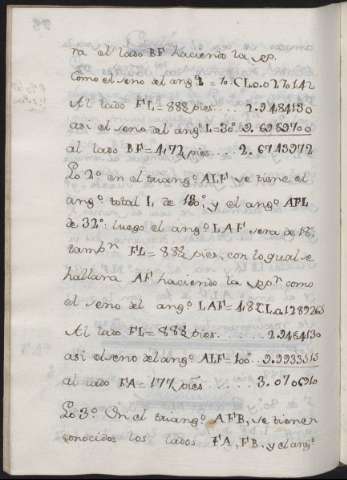 ra el lado BF haciendo la
Como el seno del ang.º B = CL.0.0270142
Al lado FL = 888 pies . . . 2.9484130
asi el seno del ang.º L = 30º 9.6989700
al lado BF = 472 pies . . . 2.6743972
Lo 2º en el triang.º ALF se tiene el
ang.º total L de y el ang.º AFL
de 32º; luego el ang.º LAF sera de
tamb.n FL = 88 pies, con lo qual se
hallara AF haciendo la como
el seno del ang.º LAF = CL.
Al lado FL = 88 pies . . . 2.9484130
asi el seno del ang.º ALF = 100º 9.9933515
al lado FA = 1177 pies . . . 3.0706910
Lo 3º En el triang.º AFB, se tienen
conocidos los lados FA, FB, y el ang.º